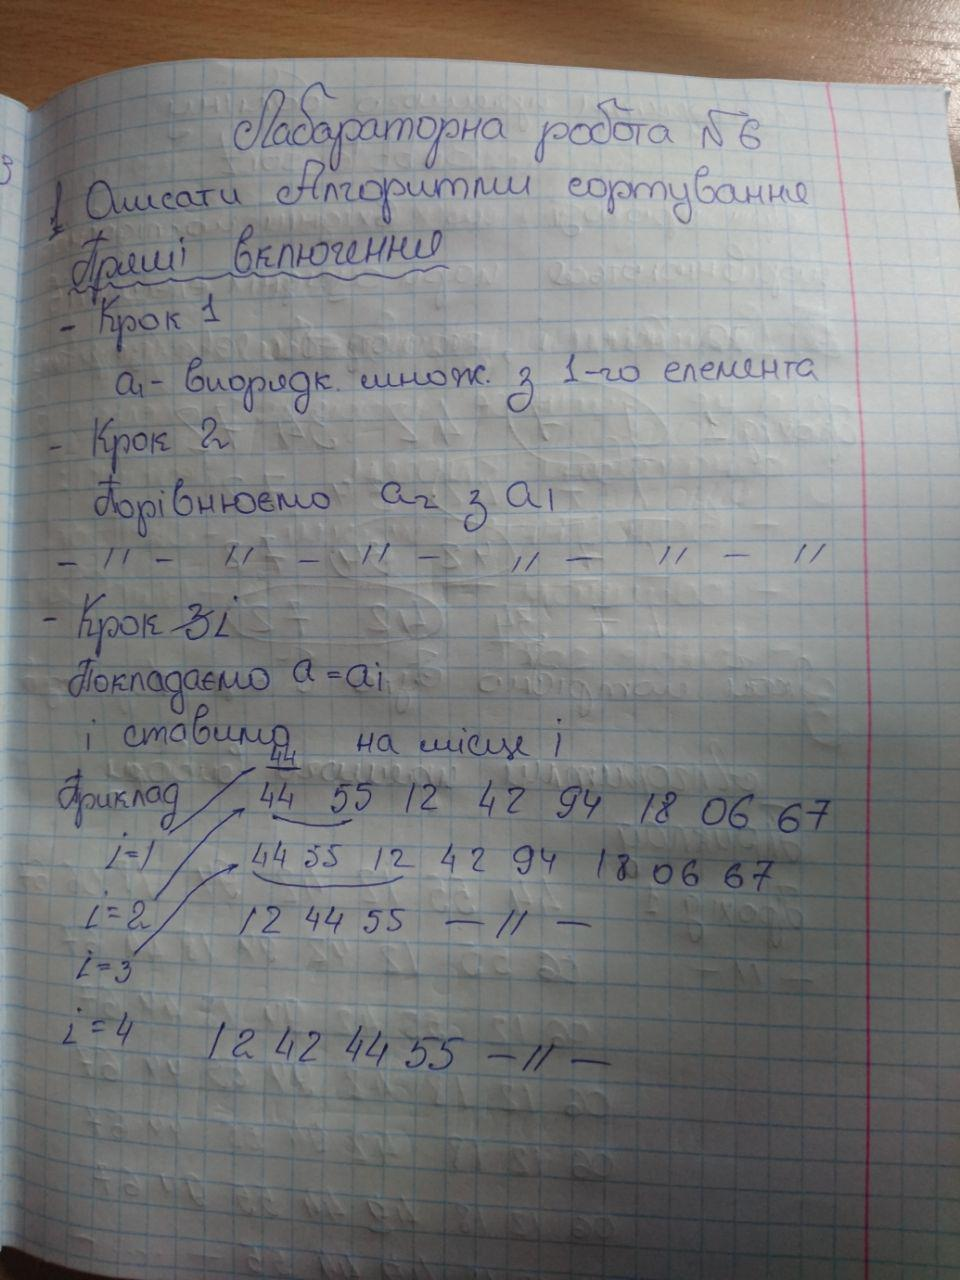 Лабараторна робота №6
1 Описати Алгоритми сортування
Прямі включення
- Крок 1
a1 - впорядк. множ. з 1-го елемента
- Крок 2
Порівнюємо a2 з a1
- // - // - // - // - // - //
- Крок 3i
Покладаємо a = ai
і ставимо на місце i
44
Приклад 44 55 12 42 94 18 06 67
i=1 44 55 12 42 94 18 06 67
i=2 12 44 55 - // -
i=3
i=4 12 42 44 55 - // -